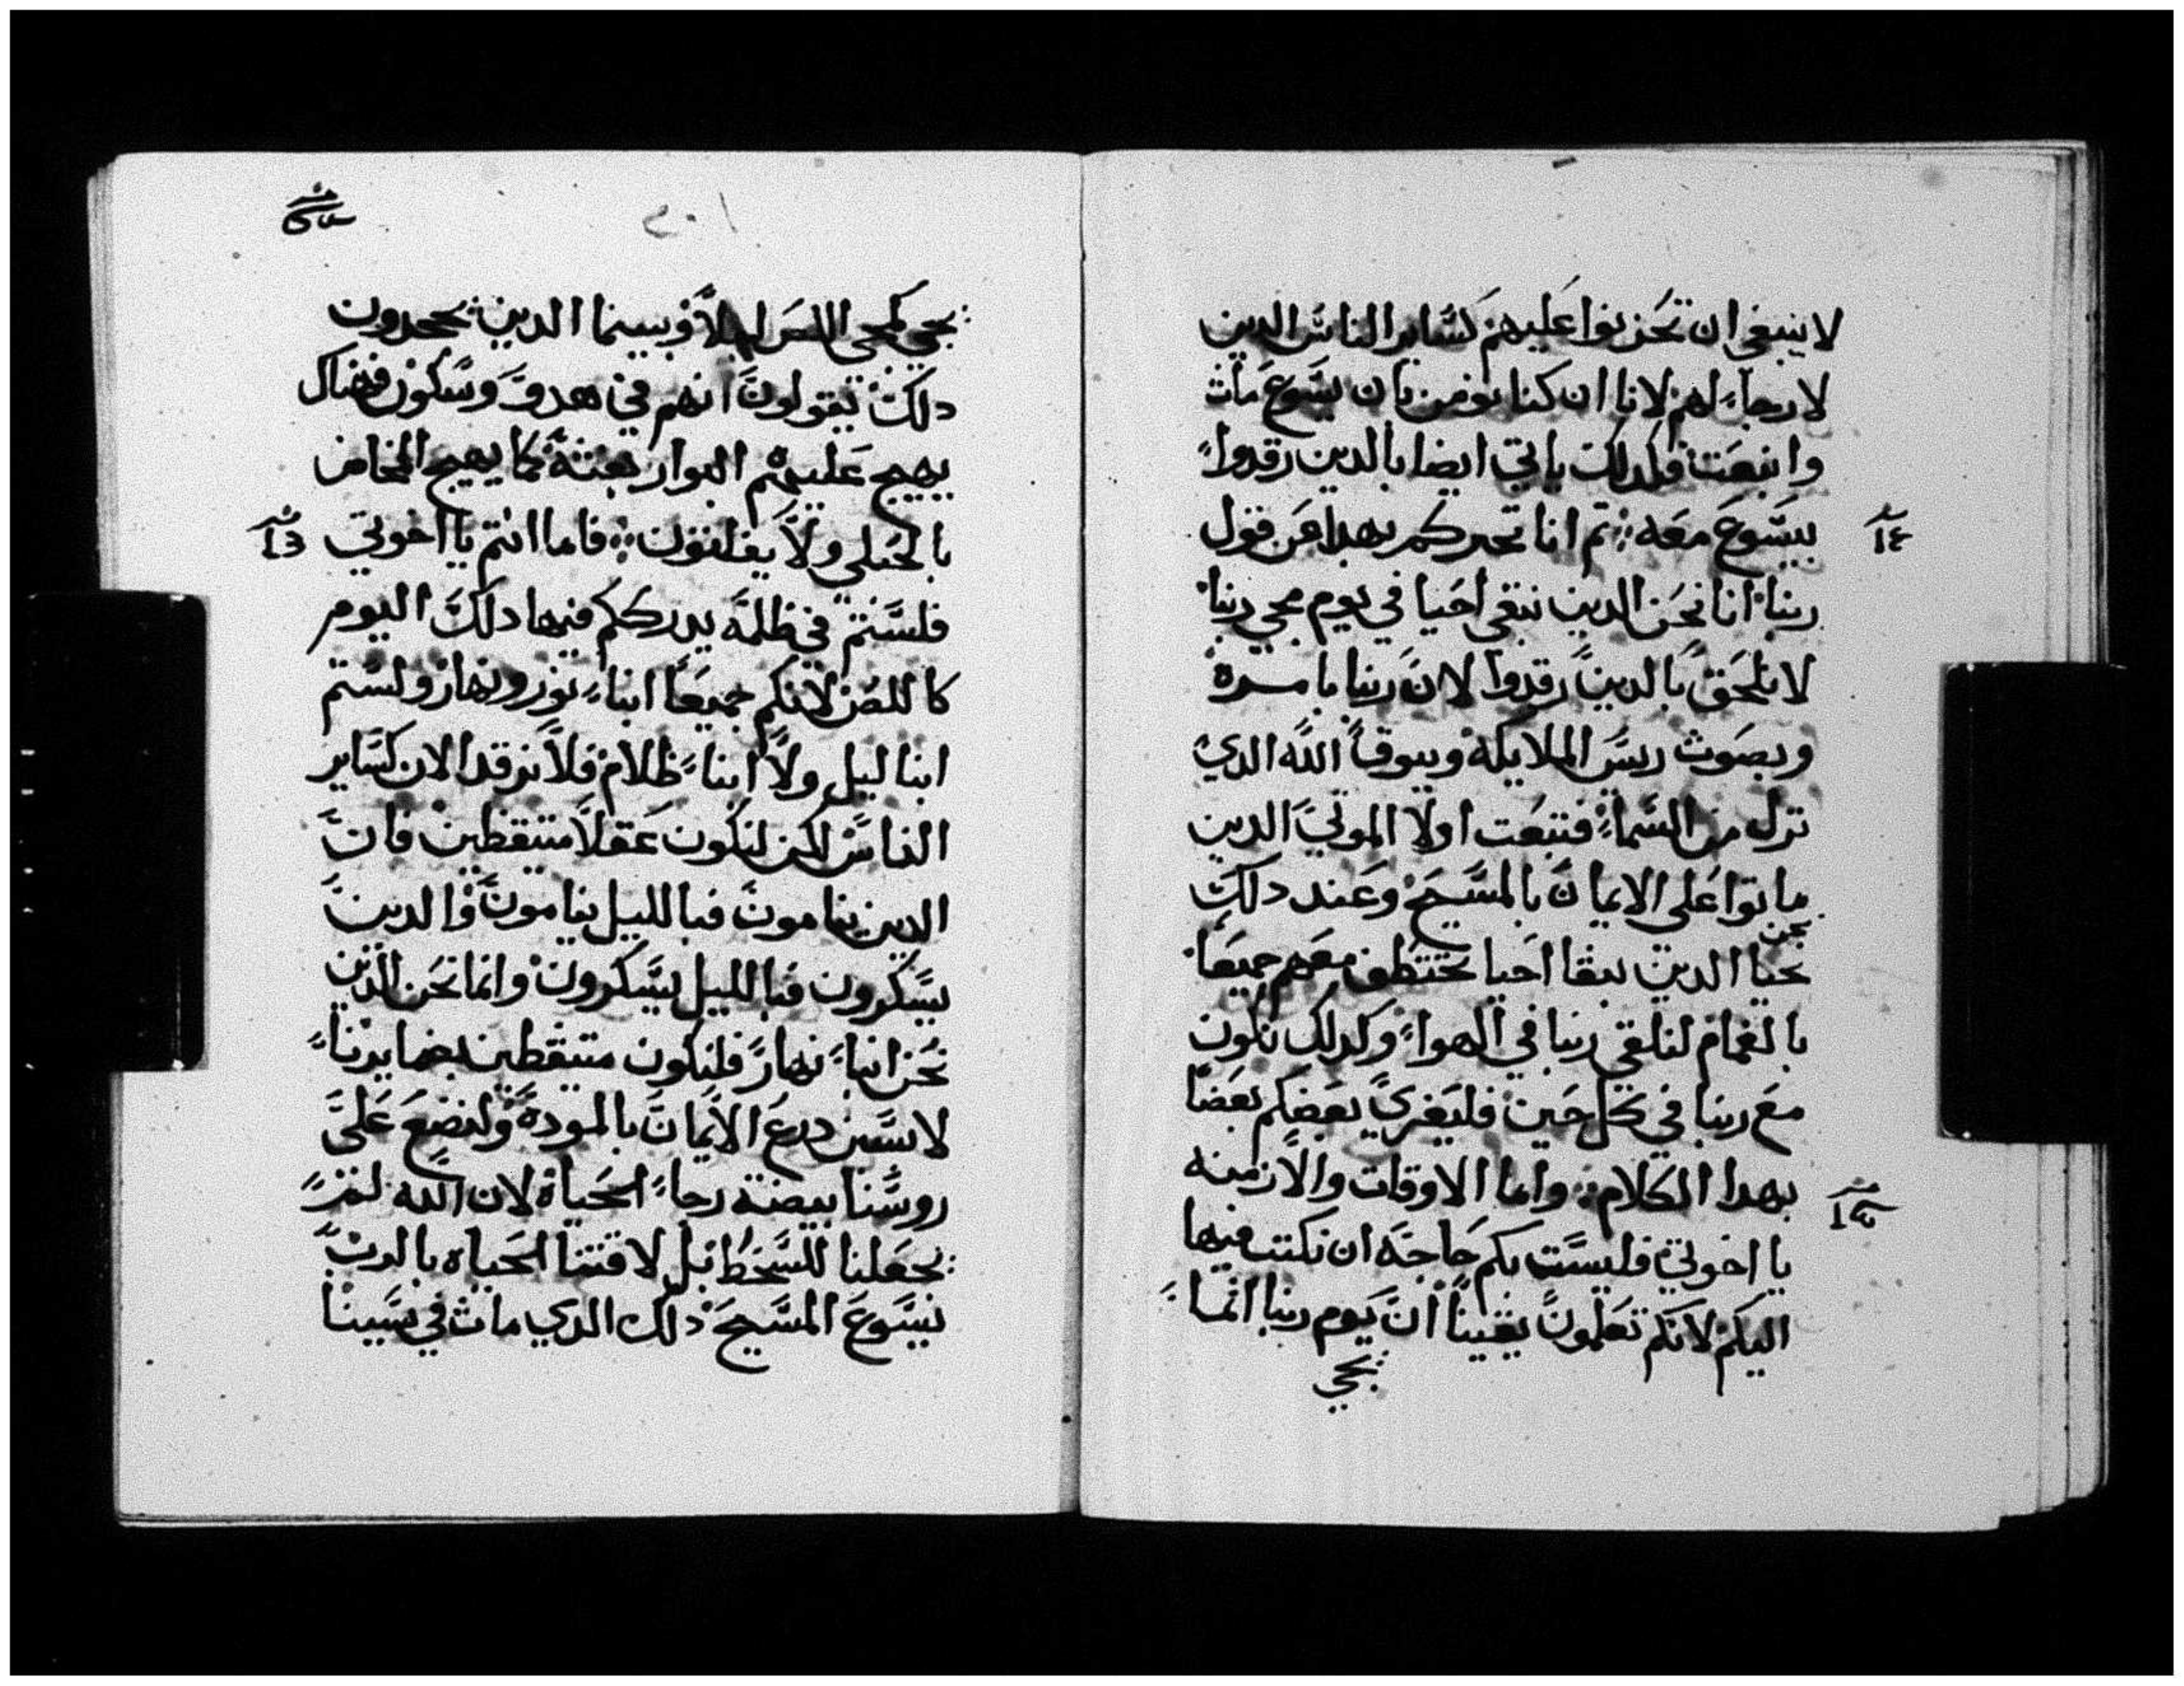 لا ينبغي ان تحزنوا عليهم كساير الناس الدين
لا رجاء لهم لانا ان كنا نومن بان يسوع مات
وانبعت فكدلك ياتي ايضا بالدين رقدوا
بيسوع معه ثم انا نخبركم بهدا عن قول
ربنا انا نحن الدين نبقى احيا في يوم مجي ربنا
لا نلحق بالدين رقدوا لان ربنا بامره
وبصوت ريس الملايكة وببوق الله الدي
نزل من السماء فتبعت اولا الموتي الدين
ماتوا على الايمان بالمسيح وعند دلك
نحن
نحيا الدين نبقا احيا نختطف معهم جميعا
بالغمام لنلقي ربنا في الهواء وكدلك نكون
مع ربنا في كل حين فليعزي بعضكم بعضا
بهدا الكلام واما الاوقات والازمنه
يا اخوتي فليست بكم حاجه ان نكتب فيها
اليكم لانكم تعلمون يقينا ان يوم ربنا انما
يجي
٢٠١
يجي كمجي اللص ليلا وبينما الدين يجحدون
دلك يقولون انهم في هدو وسكون فهناك
يهيج عليهم البوار بغتة كما يهيج المخاض
بالحبلي ولا يفلتون فاما انتم يا اخوتي
فلستم في ظلمه يدرككم فيها دلك اليوم
كاللص لانكم جميعا ابناء نور ونهار ولستم
ابنا ليل ولا ابناء ظلام فلا نرقد الان كساير
الناس لكن لنكون عقلا متيقظين فان
الدين ينامون فبالليل ينامون والدين
يسكرون فبالليل يسكرون وانما نحن الدين
نحن ابناء نهار فلنكون متيقظين بضمايرنا
لابسين درع الايمان بالمودة ولنضع على
روسنا بيضة رجاء الحياة لان الله لم
يجعلنا للسخط بل لاقتنا الحياه بالرب
يسوع المسيح دلك الدي مات في سببنا